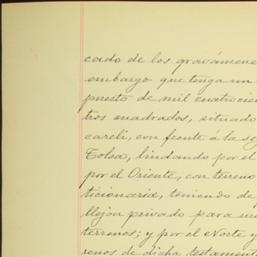 cado de los gravámene
embargo que tenga un
puesto de mil cuatrocien
tros cuadrados, situado
careli, con frente á la se
Tolsa, lindando por el
por el Oriente, con terreno
ticionaria, teniendo de p
llejon privado para us
terrenos; y por el Norte y
renos de dicha testament